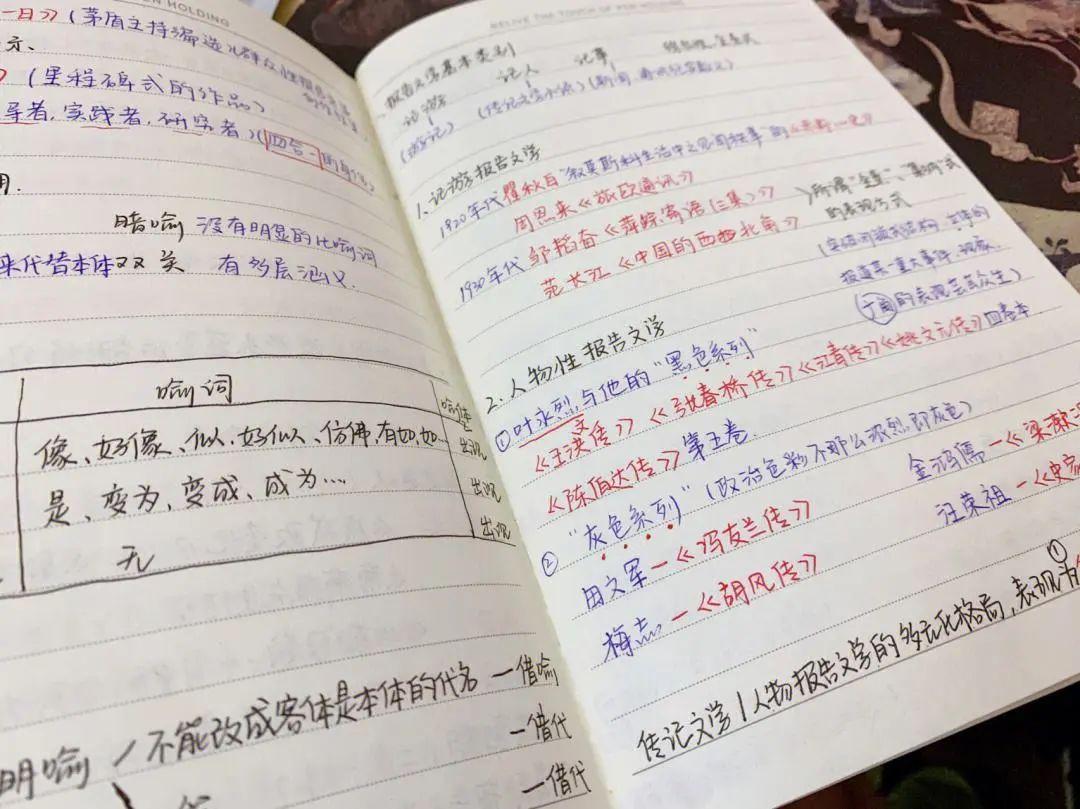 EN HOLDING
一日》（茅盾主持编选
示、
》（里程碑式的作品）
导者，实践者，研究者）（四合一的身份）
用.
暗喻 没有明显的比喻词
来代替本体 双关 有多层涵义.
喻词 喻体
像、好像、似、好似、仿佛，有如，如… 出现
是、变为，变成、成为… 出现
无 出现
明喻 / 不能改成客体是本体的代名 — 借喻
— 借代
— 借代
RELIVE THE TOUCH OF PEN HOLDING
报告文学基本类别
记游 记人 记事
（游记）（传记文学
1. 记游报告文学
1920年代 瞿秋白 "叙莫斯科生活中之见闻轶事"的
周恩来《旅欧通讯》
1930年代 邹韬奋《萍踪寄语(三集)》
范长江《中国的西北角》
所谓"全景"、"集纳"式
的表现方式
报道某一重大事件、现象
的表现芸芸众生）
2. 人物性报告文学
① 叶永烈与他的"黑色系列"
《王洪文传》《张春桥传》《江青传》《姚文元传》四卷本
《陈伯达传》第五卷
② "灰色系列"（政治色彩不那么浓烈,即灰色）
田文军 —《冯友兰传》 金鸿儒 —《梁漱
梅志 —《胡风传》 汪荣祖 —《史家
传记文学/人物报告文学的多元化格局，表现为①